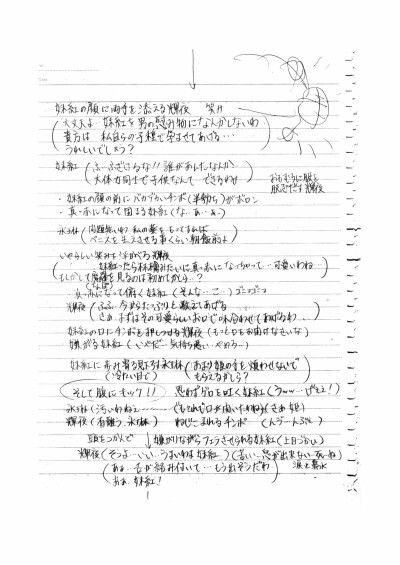 妹紅の顔に両手を添える輝夜 笑み
大丈夫よ 妹紅を男の慰み物になんかしないわ
貴方は 私自らの子種で孕ませてあげる…
うれしいでしょう?
妹紅 (ふ…ふざけるな!! 誰があんたなんか
大体女同士で子供なんて できるわけ
おもむろに服を
脱ぎだす輝夜
・妹紅の顔の前に ボロン
・真っ赤になって固まる妹紅 (な…あ…な)
永琳 (問題無いわ 私の薬をもってすれば
ペニスを生えさせる事くらい 朝飯前よ
いやらしい笑みを浮かべる輝夜
妹紅ったら 真っ赤になっちゃって…可愛いわね…
もしかして 見るのは初めてかしら…?
真っ赤になって俯く妹紅 (そんな…こ…)
輝夜 (ふふ 今からたっぷりと教えてあげる
さぁ まずはその可愛らしいお口で味合わせてあげるわ
妹紅の口にチンポを押しつける輝夜 (もっと口をお開けなさいな)
嫌がる妹紅 (いやだ…気持ち悪い…やめろ…)
妹紅に歩み寄り見下ろす永琳 (あまり姫の手を煩わせないで
(冷たい目で) もらえるかしら?
そして腹にキック!! 思わずゲロを吐く妹紅
永琳 (汚いわねぇ…
輝夜 (有難う 永琳) ねじこまれるチンポ
頭をつかんで ↓ 嫌がりながらフェラさせられる妹紅
輝夜 (そうよ…いい…うまいわよ妹紅) (苦しい…息が出来ない…死ぬ)
涙と鼻水
(あぁ…舌が絡み付いて…もう出そうだわ
あぁ 妹紅!